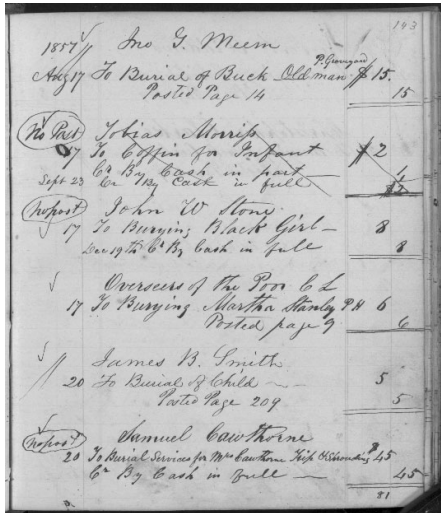 143
1857 Jno G. Meem
P. Graveyard
Aug 17 To Burial of Buck Oldman $ 15.
Posted Page 14 15
No Post Tobias Morriss
17 To Coffin for Infant $2
Cr By Cash in part
Sept 23 Cr By Cash in full
No post John W Stone
17 To Burying Black Girl — 8
Dec 19th Cr By Cash in full 8
Overseers of the Poor C L
17 To Burying Martha Stanley P H 6
Posted page 9 6
James B. Smith
20 To Burial of Child — 5
Posted Page 209 5
No post Samuel Cawthorne
20 To Burial Services for Mrs Cawthorne & Shrouding $45
Cr By Cash in full — 45
81